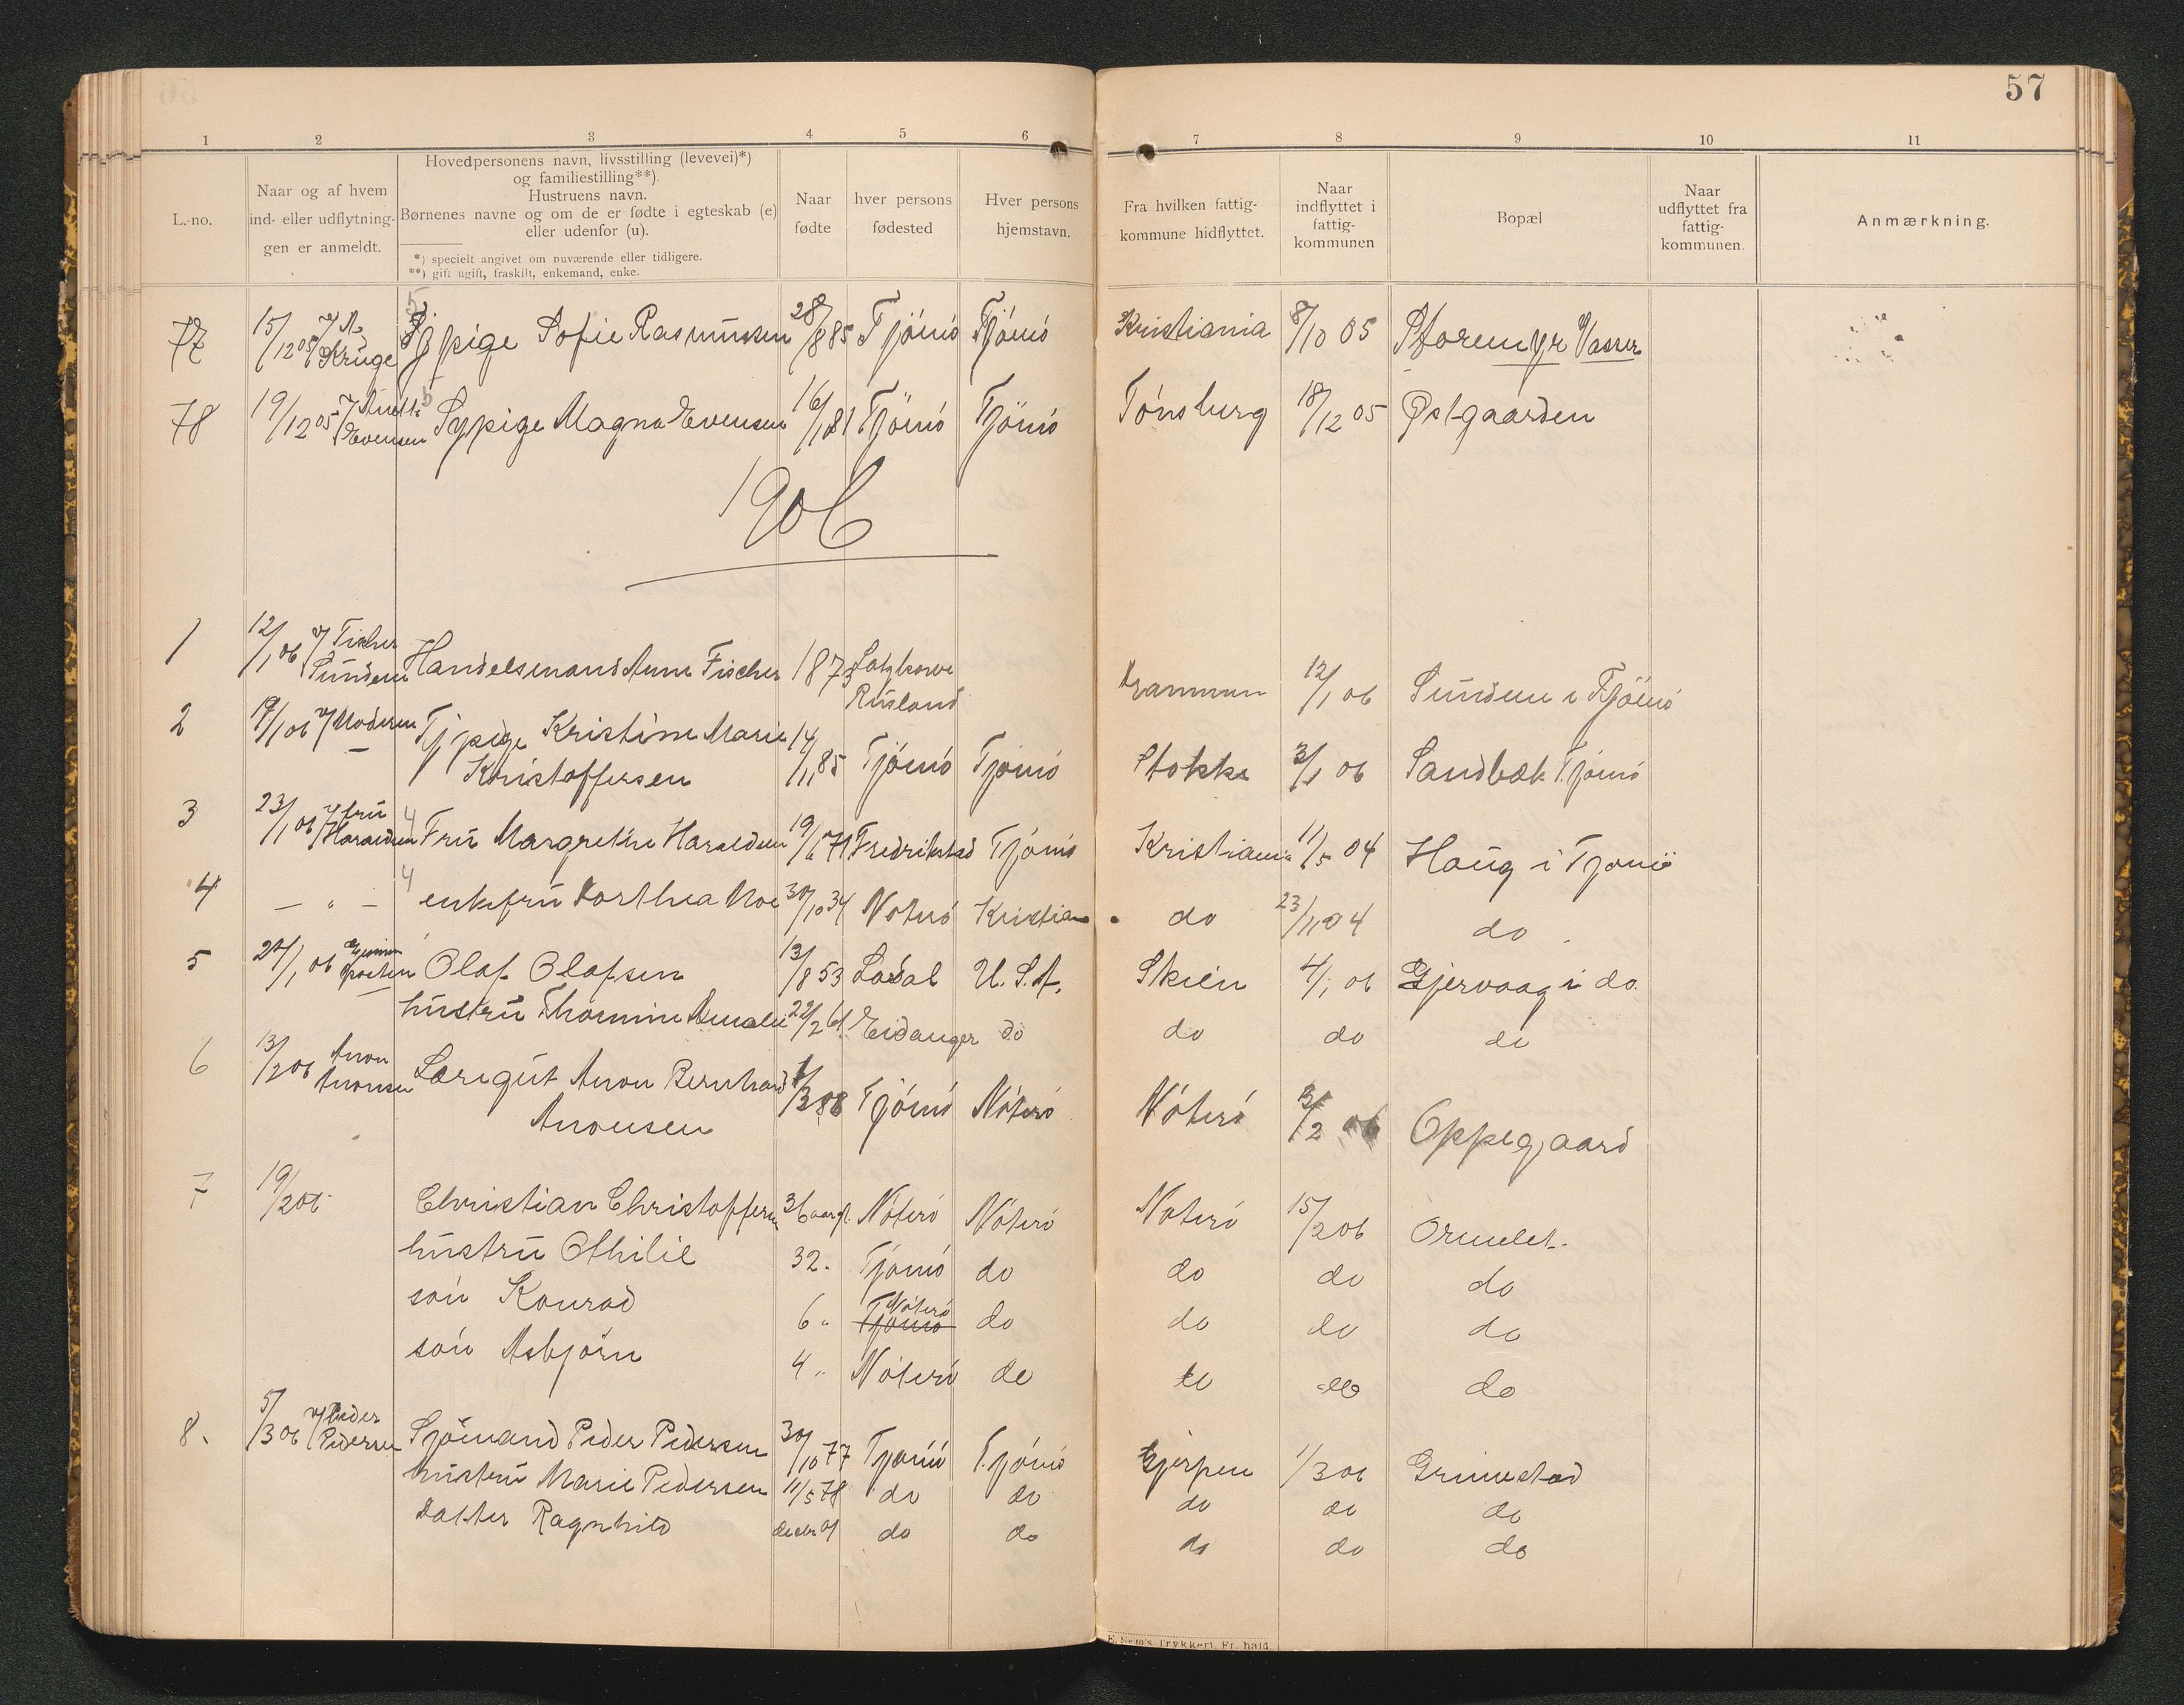 57
1 2 3 4 5 6 7 8 9 10 11
L.-no.
Naar og af hvem
ind- eller udflytning-
gen er anmeldt.
Hovedpersonens navn, livsstilling (levevei)*)
og familiestilling**).
Hustruens navn.
Børnenes navne og om de er fødte i egteskab (e)
eller udenfor (u).
*) specielt angivet om nuværende eller tidligere.
**) gift ugift, fraskilt, enkemand, enke.
Naar
fødte
hver persons
fødested
Hver persons
hjemstavn.
Fra hvilken fattig-
kommune hidflyttet.
Naar
indflyttet i
fattig-
kommunen
Bopæl
Naar
udflyttet fra
fattig-
kommunen.
Anmærkning.
77 15/12 05 Kruge pige Sofie Rasmussen 28/8 85 Tjömö Tjömö Kristiania 8/10 05 Storemyr Vasser
78 19/12 05 Evensen Sypige Magna Evensen 16/1 81 Tjömö Tjömö Tönsberg 18/12 05 Østgaarden
1906
1 12/1 06 v/ Fischer Sunden Handelsmand Fischer 1873 Rusland 12/1 06 Sunden i Tjömö
2 19/1 06 v/ Moderen Tj pige Kristine Marie 14/11 85 Tjömö Tjömö Stokke 3/1 06 Sandbæk Tjömö
Kristoffersen
3 23/1 06 v/ fru Haraldsen 4 Fru Margrethe Haraldsen 19/6 71 Fredrikstad Tjömö Kristiania 11/5 04 Haug i Tjömö
4 — " — 4 enkefru Dorthea Moe 30/10 34 Nöterö Kristian do 23/11 04 do
5 24/1 06 Olaf Olafsen 13/8 53 U. S. A. Skien 4/1 06 Gjervaag i do.
hustru Thomine Amalie 22/2 61 Eidanger do do do do
6 13/2 06 Aron Aronsen Læregut Aron Bernhard 1/3 88 Tjömö Nöterö Nöterö 13/2 06 Oppegaard
Aronsen
7 19/2 06 Christian Christoffersen 36 aar gl. Nöterö Nöterö Nöterö 15/2 06 Ormelet.
hustru Othilie 32. Tjömö do do do do
sön Konrad 6 " Tjömö Nöterö do do do do
sön Asbjörn 4 " Nöterö do do do do
8. 5/3 06 v/ Peder Pedersen Sjömand Peder Pedersen 30/10 77 Tjömö Tjömö Gjerpen 1/3 06 Grimestad
hustru Marie Pedersen 11/5 78 do do do do do
datter Ragnhild decbr 01 do do do do do